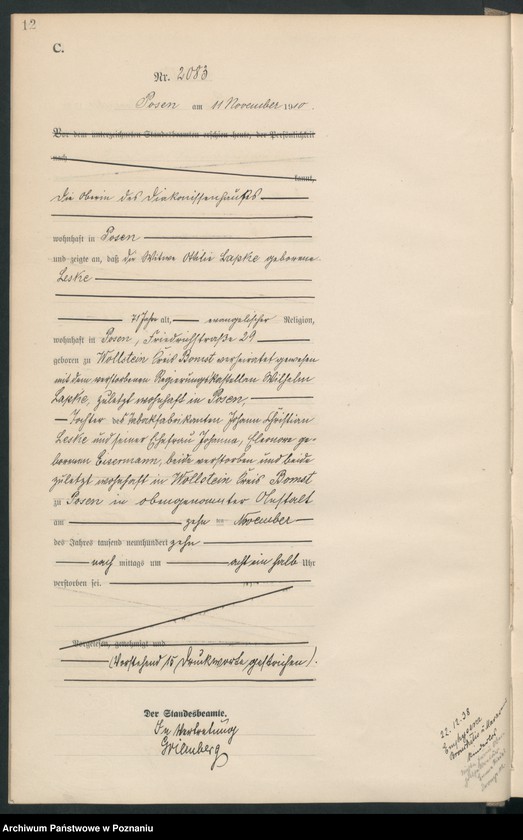 12
C.
Nr. 2083
Posen am 11 November 1910.
Vor dem unterzeichneten Standesbeamten erschien heute, der Persönlichkeit
nach
kannt,
die Oberin des Diakonissenhauses
wohnhaft in Posen
und zeigte an, daß die Witwe Ottilie Lapke geborene
Leske
71 Jahre alt, evangelischer Religion,
wohnhaft in Posen, Friedrichstraße 29
geboren zu Wollstein Kreis Bomst verheiratet gewesen
mit dem verstorbenen Regierungskastellan Wilhelm
Lapke, zuletzt wohnhaft in Posen,
Tochter des Tabakfabrikanten Johann Christian
Leske und seiner Ehefrau Johanna, Eleonore ge-
borenen Eisermann, beide verstorben und beide
zuletzt wohnhaft in Wollstein Kreis Bomst
zu Posen in obengenannter Anstalt
am zehn ten November
des Jahres tausend neunhundert zehn
nach mittags um acht ein halb Uhr
verstorben sei.
Vorgelesen, genehmigt und
(Vorstehend 15 Druckworte gestrichen).
Der Standesbeamte.
In Vertretung
22.12.38
Archiwum Państwowe w Poznaniu